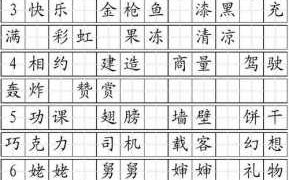 3 快乐 金枪鱼 漆黑 充
满 彩虹 果冻 清凉
4 相约 建造 商量 驾驶
轰炸 赞赏
5 功课 翅膀 墙壁 饼干
巧克力 司机 载客 幻想
6 姥姥 舅舅 婶婶 礼物